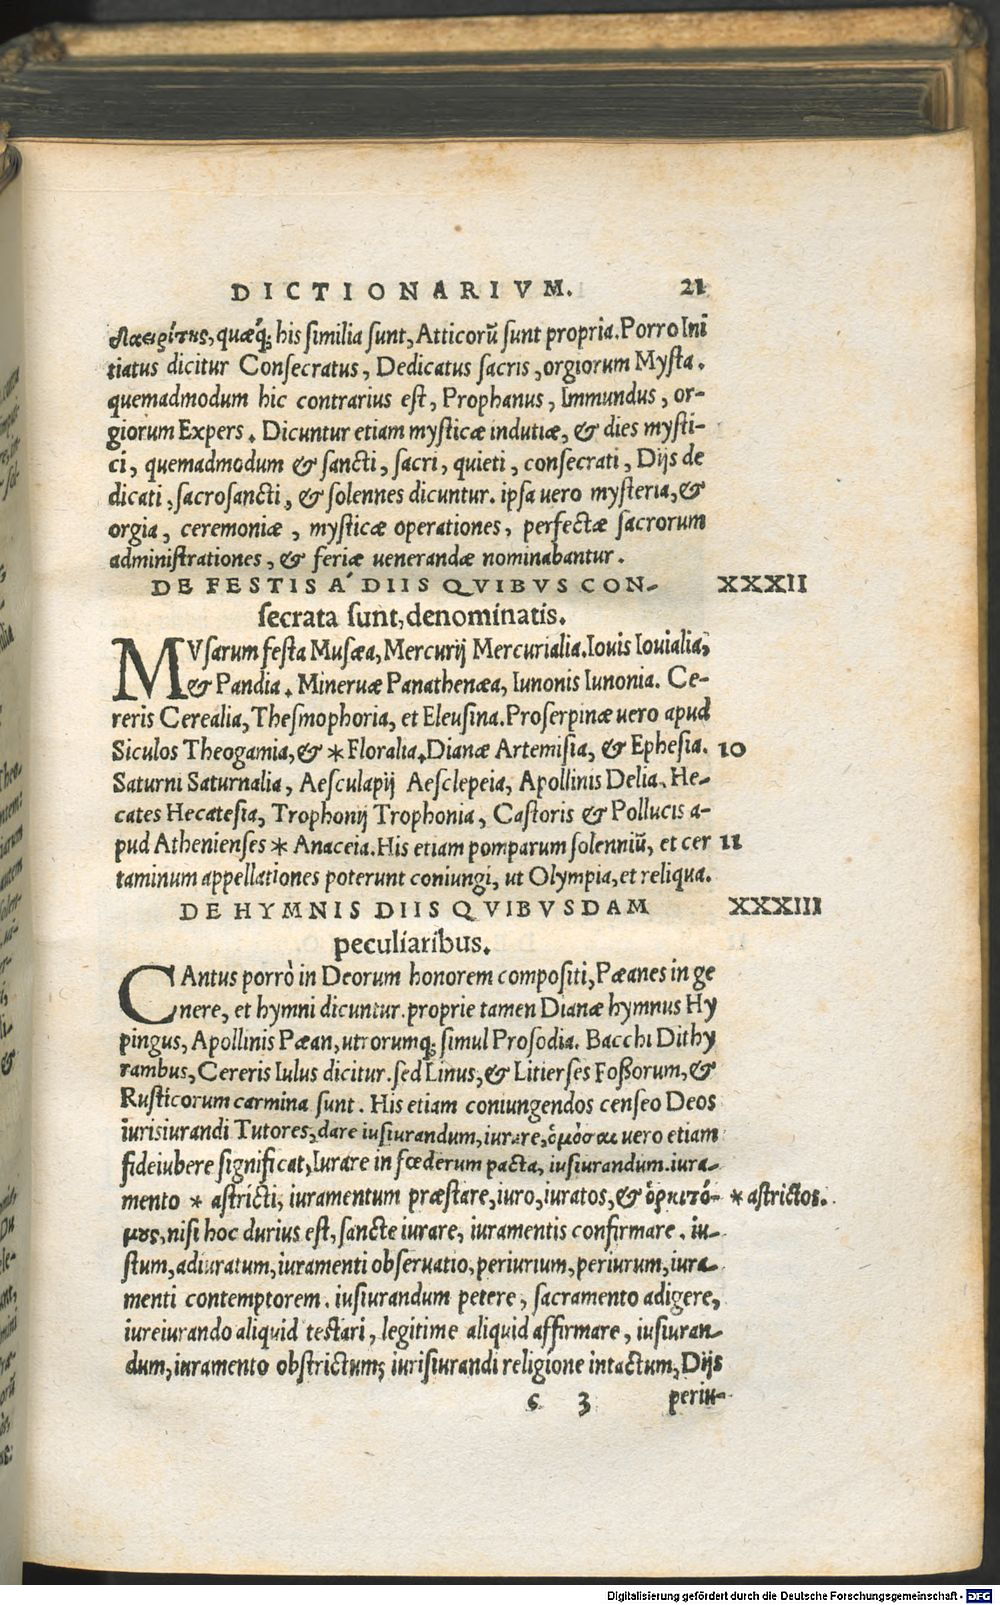 DICTIONARIVM. 21
quæq; his ſimilia ſunt, Atticorũ ſunt propria. Porro Ini
tiatus dicitur Conſecratus, Dedicatus ſacris, orgiorum Myſta.
quemadmodum hic contrarius eſt, Prophanus, Immundus, or-
giorum Expers. Dicuntur etiam myſticæ indutiæ, & dies myſti-
ci, quemadmodum & ſancti, ſacri, quieti, conſecrati, Dijs de
dicati, ſacroſancti, & ſolennes dicuntur. ipſa uero myſteria, &
orgia, ceremoniæ, myſticæ operationes, perfectæ ſacrorum
adminiſtrationes, & feriæ uenerandæ nominabantur.
DE FESTIS Á DIIS QVIBVS CON- XXXII
ſecrata ſunt, denominatis.
MVſarum feſta Muſæa, Mercurij Mercurialia. Iouis Iouialia,
& Pandia. Mineruæ Panathenæa, Iunonis Iunonia. Ce-
reris Cerealia, Theſmophoria, et Eleuſina. Proſerpinæ uero apud
Siculos Theogamia, & * Floralia. Dianæ Artemiſia, & Epheſia. 10
Saturni Saturnalia, Aeſculapij Aeſclepeia, Apollinis Delia. He-
cates Hecateſia, Trophonij Trophonia, Caſtoris & Pollucis a-
pud Athenienſes * Anaceia. His etiam pomparum ſolenniũ, et cer 11
taminum appellationes poterunt coniungi, ut Olympia, et reliqua.
DE HYMNIS DIIS QVIBVSDAM XXXIII
peculiaribus.
CAntus porrò in Deorum honorem compoſiti, Pæanes in ge
nere, et hymni dicuntur. proprie tamen Dianæ hymnus Hy
pingus, Apollinis Pæan, utrorumq; ſimul Proſodia. Bacchi Dithy
rambus, Cereris Iulus dicitur. ſed Linus, & Litierſes Foſſorum, &
Ruſticorum carmina ſunt. His etiam coniungendos cenſeo Deos
iurisiurandi Tutores, dare iuſiurandum, iurare, ὀμόσαι uero etiam
fideiubere ſignificat, Iurare in fœderum pacta, iuſiurandum. iura-
mento * aſtricti, iuramentum præſtare, iuro, iuratos, & ὁρκιτό- * aſtrictos.
μους, niſi hoc durius eſt, ſancte iurare, iuramentis confirmare. iu-
ſtum, adiuratum, iuramenti obſeruatio, periurium, periurum, iura-
menti contemptorem. iuſiurandum petere, ſacramento adigere,
iureiurando aliquid teſtari, legitime aliquid affirmare, iuſiuran-
dum, iuramento obſtrictum, iuriſiurandi religione intactum, Dijs
c 3 periu-
Digitalisierung gefördert durch die Deutsche Forschungsgemeinschaft - DFG